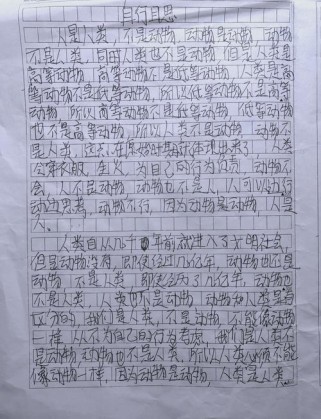 自行自思
人是人类，不是动物，动物是动物，动物
不是人类，同时人类也不是动物，但是人类是
高等动物，高等动物不是低等动物，人类是高
等动物不是低等动物，所以低等动物不是高等
动物，所以高等动物不是低等动物，低等动物
也不是高等动物，所以人类不是动物，动物不
是人类，这点在原始时期就体现出来了，人类
会穿衣服，生火，为自己的行为负责，动物不
会，人不是动物，动物也不是人，人可以边行
动边思考，动物不行，因为动物是动物，人是
人。
人类自从几千年前就进入了文明社会，
但是动物没有，即使经过几亿年，动物也不是
动物，不是人类，即使经过了几亿年，动物也
不是人类，人类也不是动物，动物和人类是有
区分的，我们是人类，不是动物，不能像动物
一样，从不为自己的行为考虑，我们是人类不
是动物，动物也不是人类，所以人类不能
像动物一样，因为动物是动物，人类是人类。